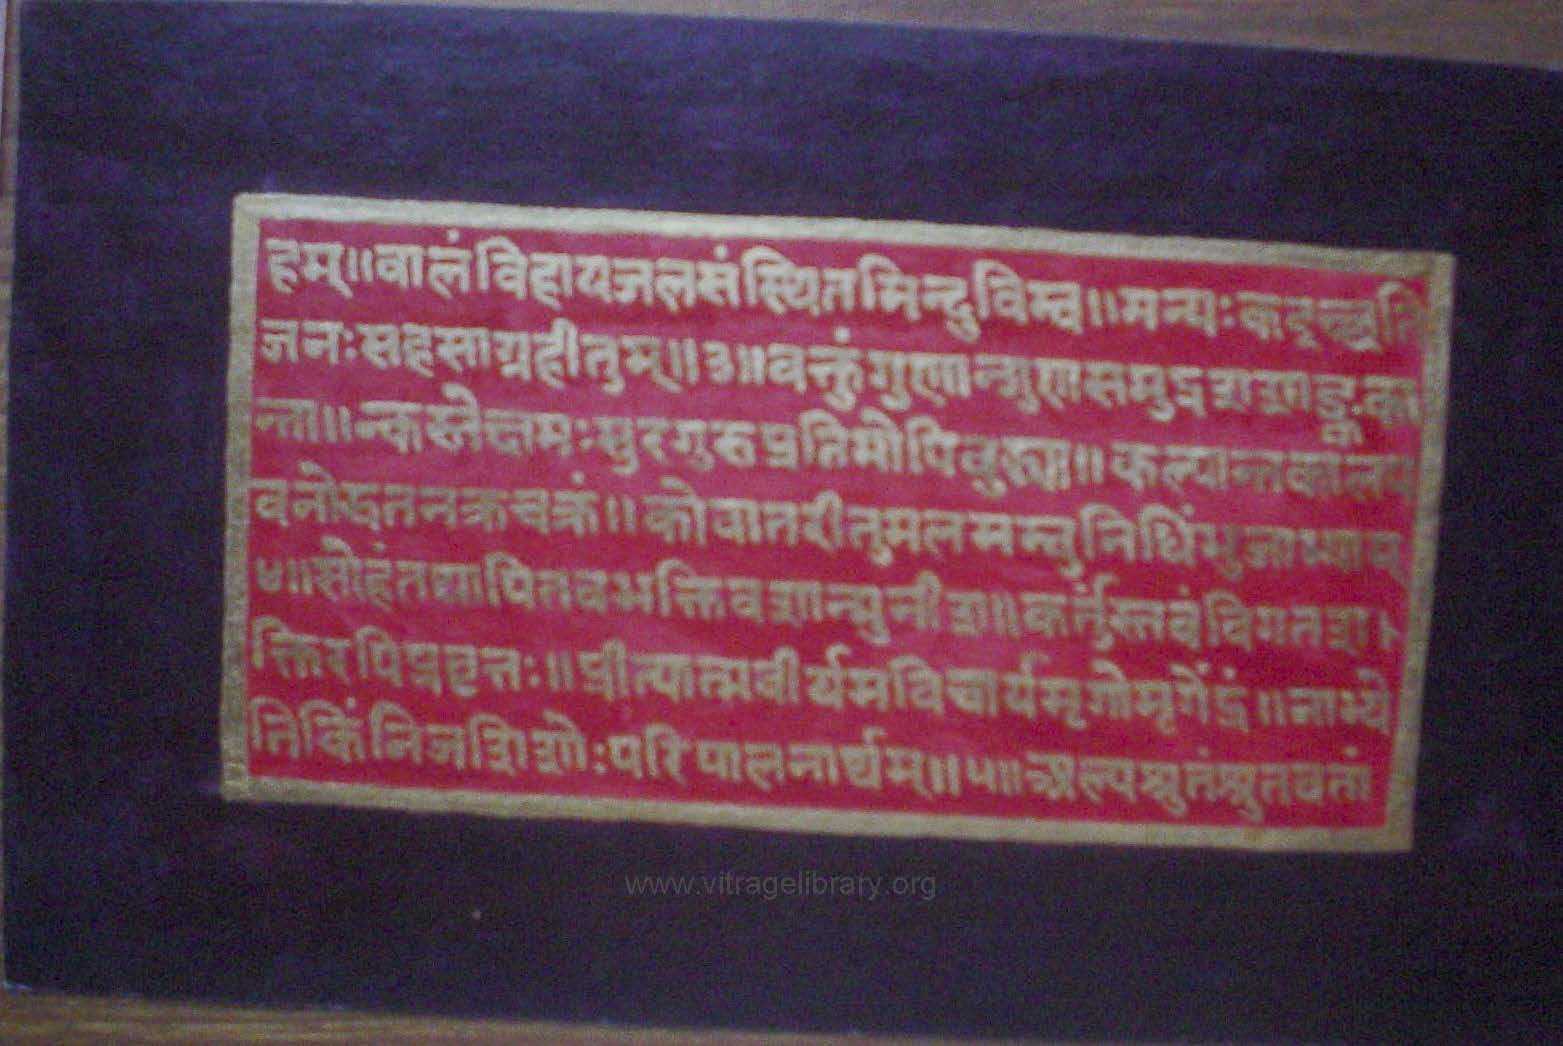 हम्॥वालंविहायजलसंस्थितमिन्दुविम्ब॥मन्यःकइच्छति
जनःसहसाग्रहीतुम्॥३॥वक्तुंगुणान्गुणसमुद्रशशाङ्कका
न्ता॥न्कस्तेक्षमःसुरगुरुप्रतिमोपिवुद्ध्या॥कल्पान्तकालप
वनोद्धतनक्रचक्रं॥कोवातरीतुमलमम्वुनिधिंभुजाभ्याम्
४॥सोहंतथापितवभक्तिवशान्मुनीश॥कर्तुंस्तवंविगतश
क्तिरपिप्रवृत्तः॥प्रीत्यात्मवीर्यमविचार्यमृगोमृगेंद्रं॥नाभ्ये
तिकिंनिजशिशोःपरिपालनार्थम्॥५॥अल्पश्रुतंश्रुतवतां
www.vitragelibrary.org